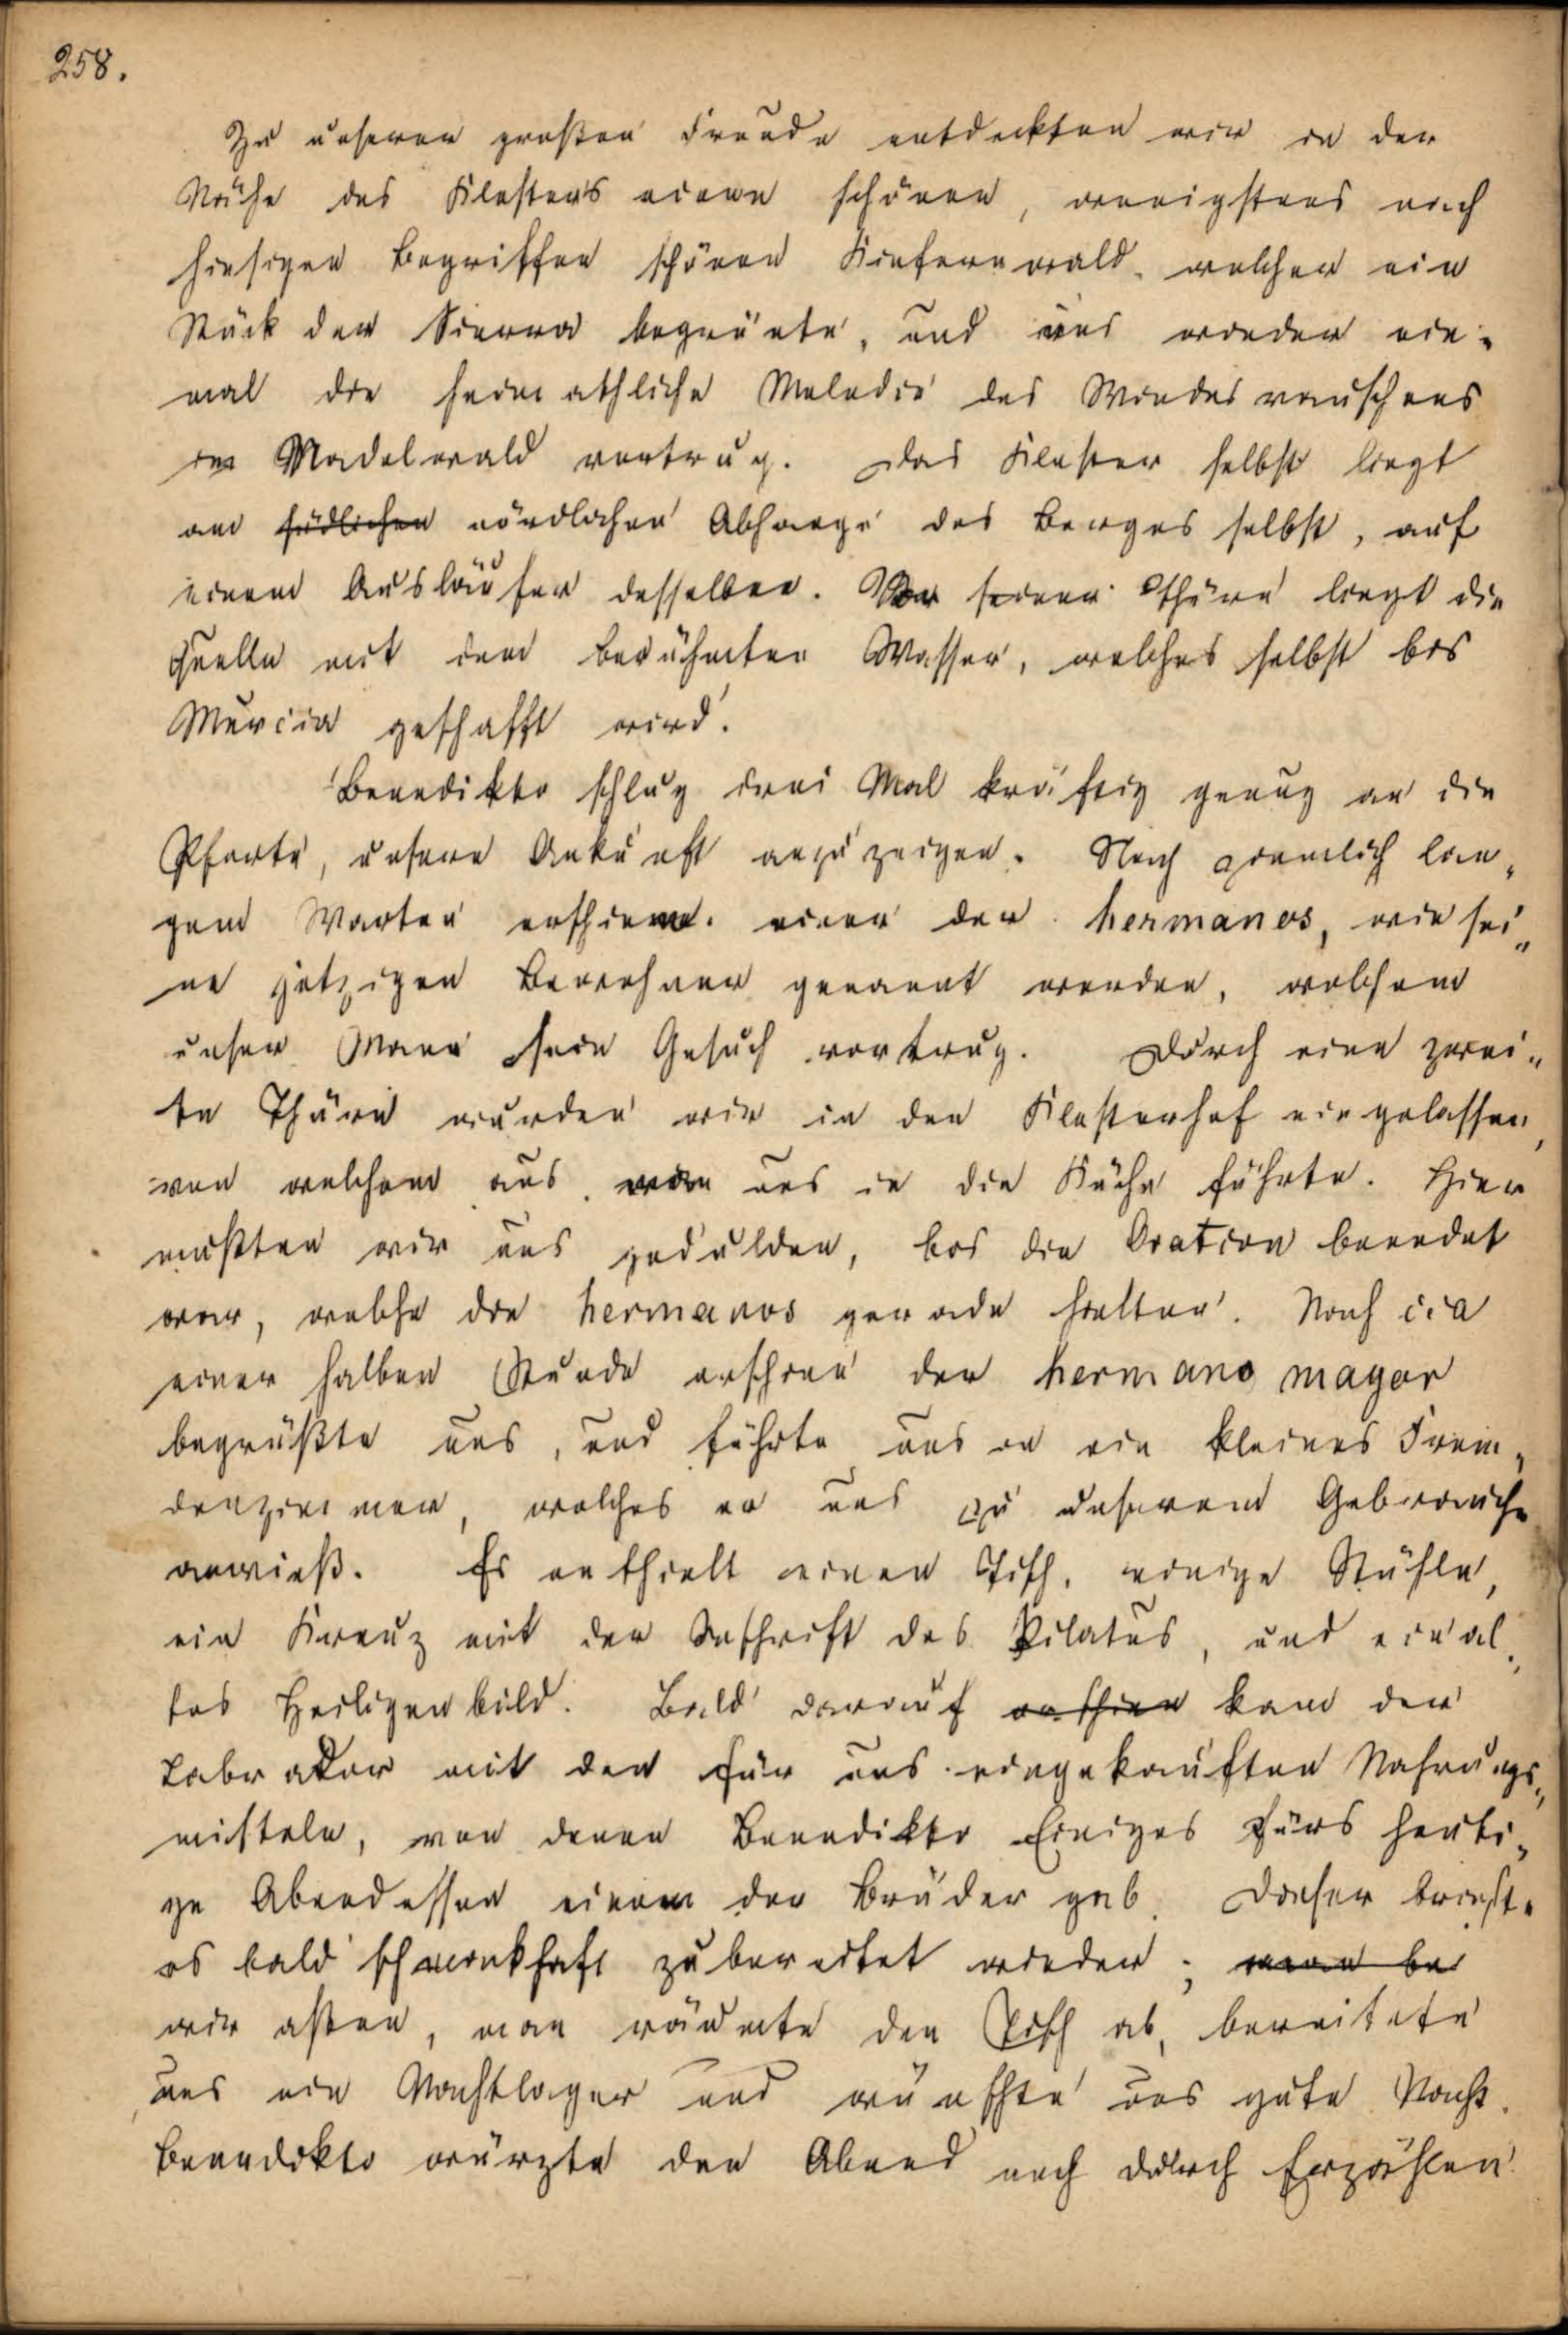 258.
Zu unserer großen Freude entdeckten wir in der
Nähe des Klosters einen schönen, wenigstens nach
hiesigen Begriffen schönen Kiefernwald, welcher ein
Stück der Sierra begrünte, und uns wieder ein-
mal die heimathliche Melodie des Windesrauschens
im Nadelwald vortrug. Das Kloster selbst liegt
am südlichen nördlichen Abhange des Berges selbst, auf
einem Ausläufer desselben. Vor seiner Thüre liegt die
Quelle mit dem berühmten Wasser, welches selbst bis
Murcia geschafft wird.
Benedikto schlug drei Mal kräftig genug an die
Pforte, unsere Ankunft anzuzeigen. Nach ziemlich lan-
gem Warten erschien einer der hermanos, wie sei-
ne jetzigen Bewohner genannt werden, welchem
unser Mann sein Gesuch vortrug. Durch eine zwei-
te Thüre wurden wir in den Klosterhof eingelassen,
von welchem aus man uns in die Küche führte. Hier
mußten wir uns gedulden, bis die Oration beendet
war, welche die hermanos gerade hielten. Nach cca
einer halben Stunde erschien der hermano mayor
begrüßte uns, und führte uns in ein kleines Frem-
denzimmer, welches er uns zu unserem Gebrauche
anwieß. Es enthielt einen Tisch, einige Stühle,
ein Kreuz mit der Inschrift des Pilatus, und ein al-
tes Heiligenbild. Bald darauf erschien kam der
Labrador mit den für uns eingekauften Nahrungs-
mitteln, von denen Benedikto Einiges fürs heuti-
ge Abendessen einem der Brüder gab. Dieser brachte
es bald schmackhaft zubereitet wieder; man be
wir aßen, man räumte den Tisch ab, bereitete
uns ein Nachtlager und wünschte uns gute Nacht.
Benedikto würzte den Abend noch durch Erzählen